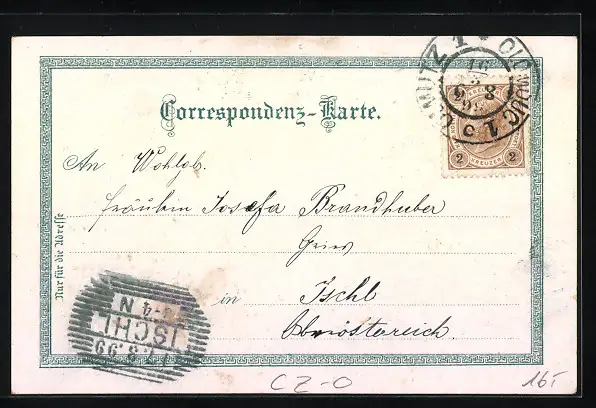 OLMÜTZ 1 * OLOMOUC 1
Correspondenz-Karte.
2 KREUZER 2
An Wohlgb.
Fräulein Josefa Brandhuber
Gries
in Ischl
Oberösterreich.
Nur für die Adresse
ISCHL
CZ-O